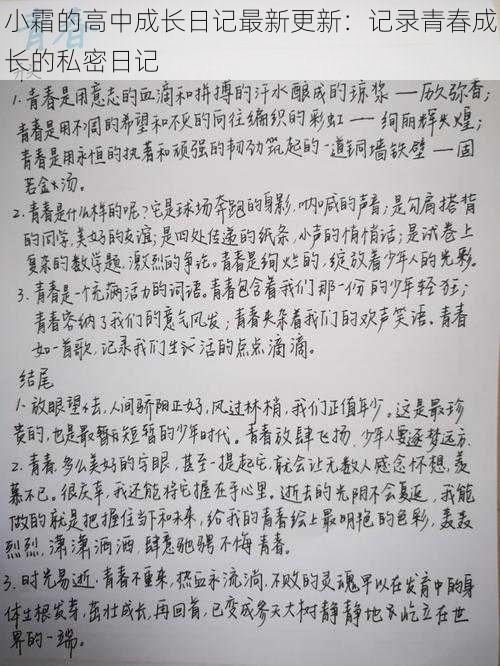 小霜的高中成长日记最新更新：记录青春成
长的私密日记
青春
1.青春是用意志的血滴和拼搏的汗水酿成的琼浆——历久弥香；
青春是用不凋的希望和不灭的向往编织的彩虹——绚丽辉煌；
青春是用永恒的执著和顽强的韧劲筑起的一道铜墙铁壁——固
若金汤。
2.青春是什么样的呢？它是球场奔跑的身影，呐喊的声音；是勾肩搭背
的同学，美好的友谊；是四处传递的纸条，小声的悄悄话；是试卷上
复杂的数学题，激烈的争论。青春是绚烂的，绽放着少年人的光彩。
3.青春是一个充满活力的词语。青春包含着我们那一份的少年轻狂；
青春容纳了我们的意气风发；青春夹杂着我们的欢声笑语。青春
如一首歌，记录我们生活的点点滴滴。
结尾
1.放眼望去，人间骄阳正好，风过林梢，我们正值年少。这是最珍
贵的，也是最短暂的少年时代。青春放肆飞扬，少年人要逐梦远方。
2.青春，多么美好的字眼，甚至一提起它，就会让无数人感念怀想，羡
慕不已。很庆幸，我还能将它握在手心里。逝去的光阴不会复返，我能
做的就是把握住当下和未来，给我的青春绘上最明艳的色彩，轰轰
烈烈，潇潇洒洒，肆意驰骋不悔青春。
3.时光易逝，青春不重来，热血永流淌，不败的灵魂早以在发育中的身
体生根发芽，茁壮成长，再回首，已变成参天大树静静地屹立在世
界的一端。